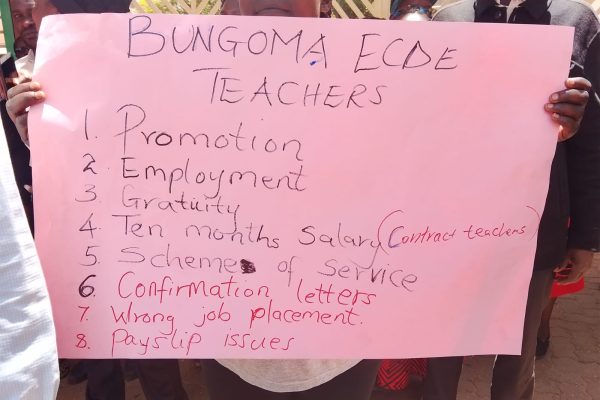 BUNGOMA ECDE
TEACHERS
1. Promotion
2. Employment
3. Gratuity
4. Ten months Salary (Contract teachers)
5. Scheme of Service
6. Confirmation letters
7. Wrong job placement.
8. Payslip issues